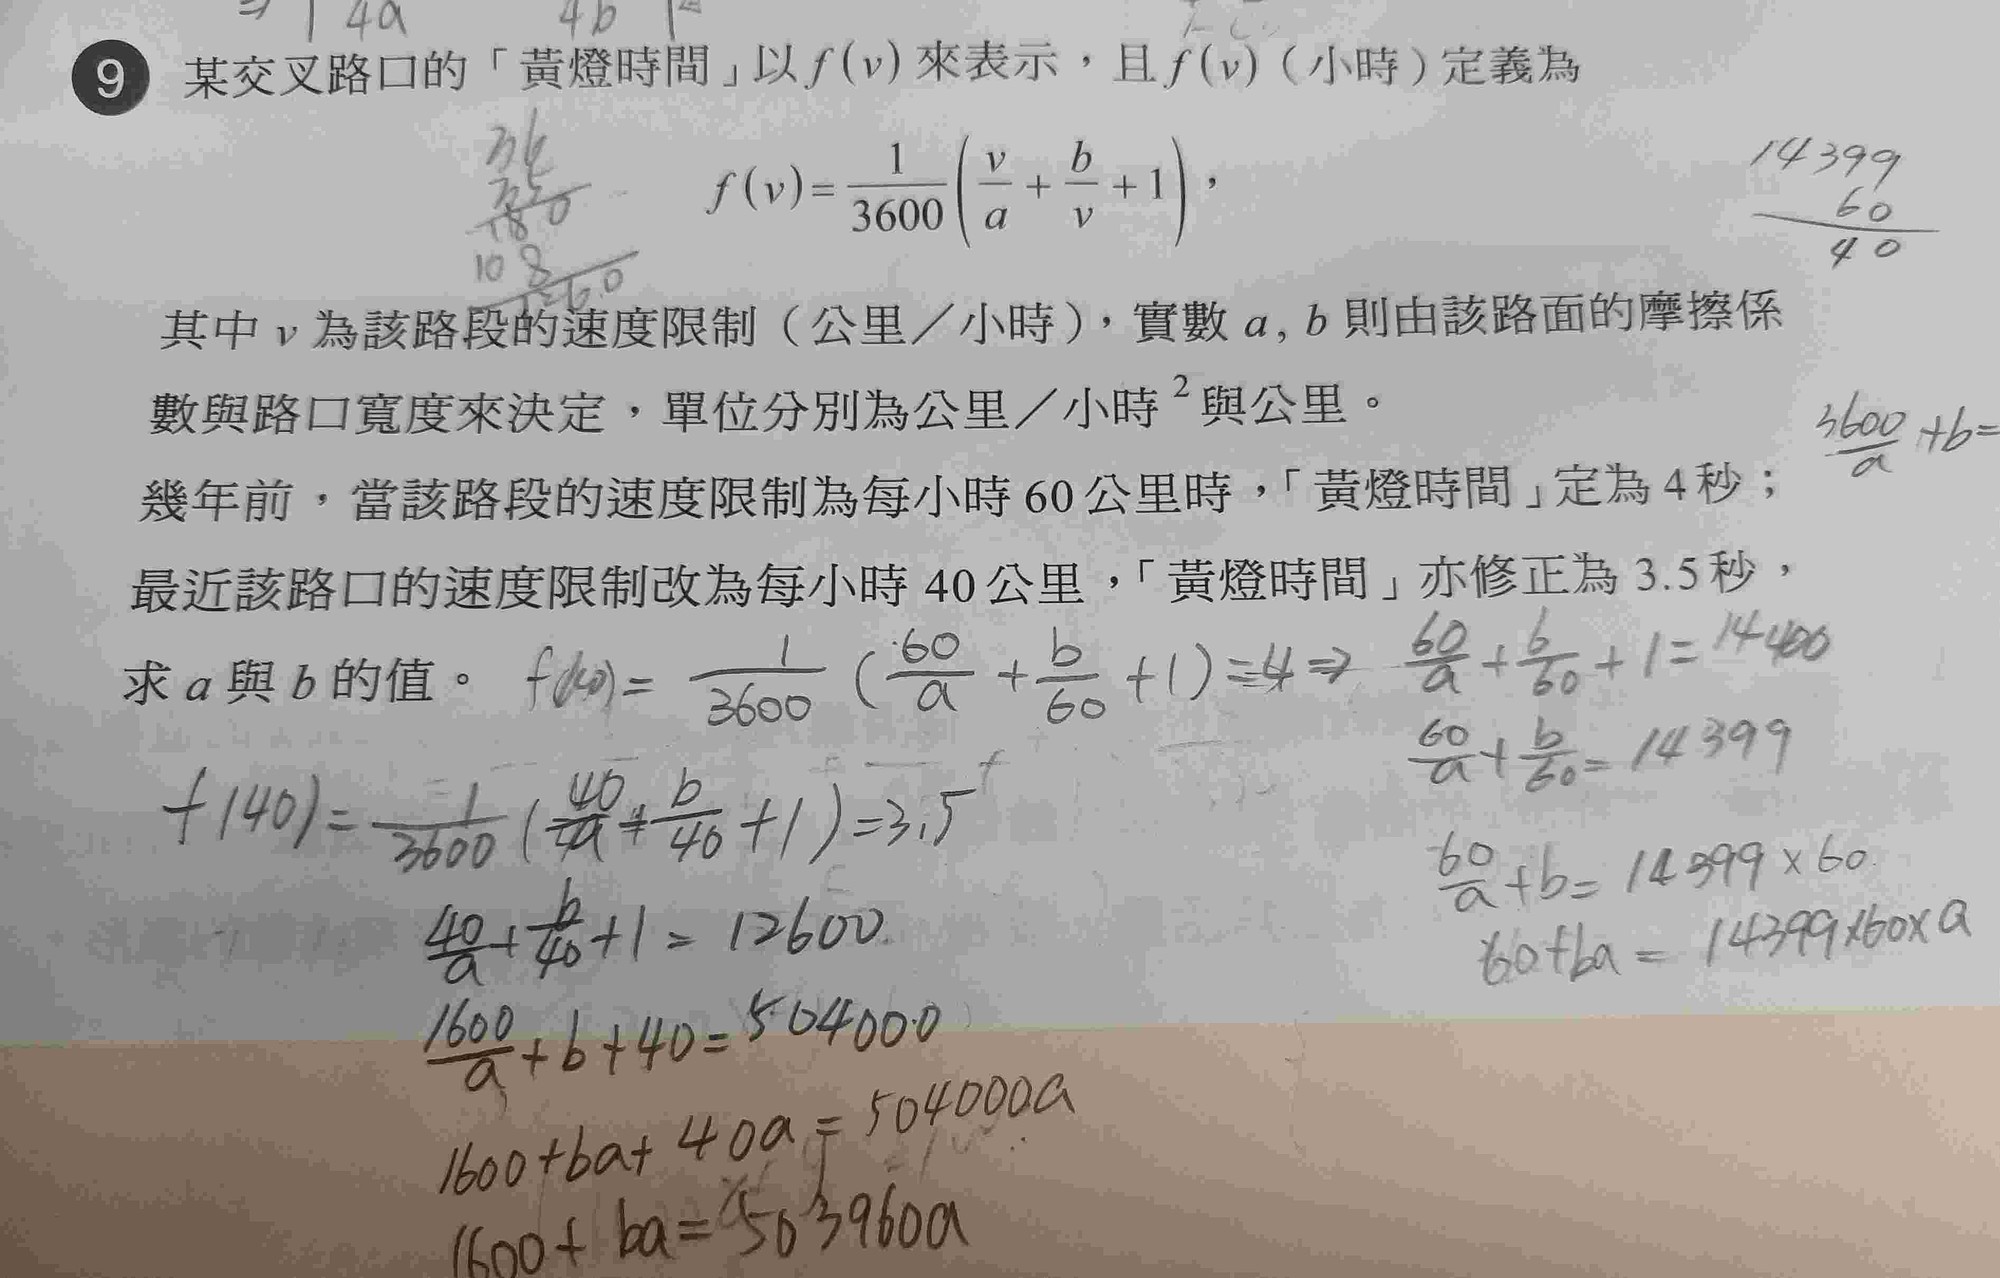 ⇒ 4a 4b
9 某交叉路口的「黃燈時間」以 f(v) 來表示，且 f(v)（小時）定義為
f(v)=1/3600(v/a+b/v+1)，
36
180
108
14399
60
40
其中 v 為該路段的速度限制（公里／小時），實數 a, b 則由該路面的摩擦係
數與路口寬度來決定，單位分別為公里／小時²與公里。
3600/a+b=
幾年前，當該路段的速度限制為每小時 60 公里時，「黃燈時間」定為 4 秒；
最近該路口的速度限制改為每小時 40 公里，「黃燈時間」亦修正為 3.5 秒，
求 a 與 b 的值。
f(60)=1/3600(60/a+b/60+1)=4⇒60/a+b/60+1=14400
60/a+b/60=14399
f(40)=1/3600(40/a+b/40+1)=3.5
60/a+b=14399×60
40/a+b/40+1=12600
60+ba=14399×60×a
1600/a+b+40=504000
1600+ba+40a=504000a
1600+ba=503960a